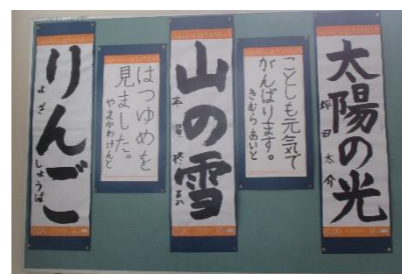 太陽の光
坪田太介
ことしも元気で
がんばります。
きむらあいと
山の雪
はつゆめを
見ました。
やまかわけんと
りんご